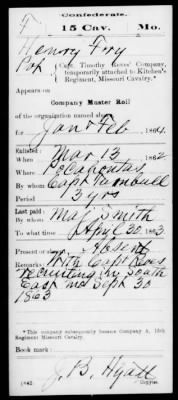 Confederate.
F 15 Cav. Mo.
Henry Fry
Pvt { Capt. Timothy Reves' Company,
temporarily attached to Kitchen's
Regiment, Missouri Cavalry.*
Appears on
Company Muster Roll
of the organization named above
for Jan & Feb, 1864.
Enlisted:
When Mar 13, 1862
Where Pocahontas
By whom Capt Turnbull
Period 3 yrs
Last paid:
By whom Maj Smith
To what time April 30, 1863
Present or absent Absent
Remarks: With Capt
recruiting in South
East Mo Sept 30
1863
*This company subsequently became Company A, 15th
Regiment Missouri Cavalry.
Book mark:
J. B. Hyatt
(642) Copyist.